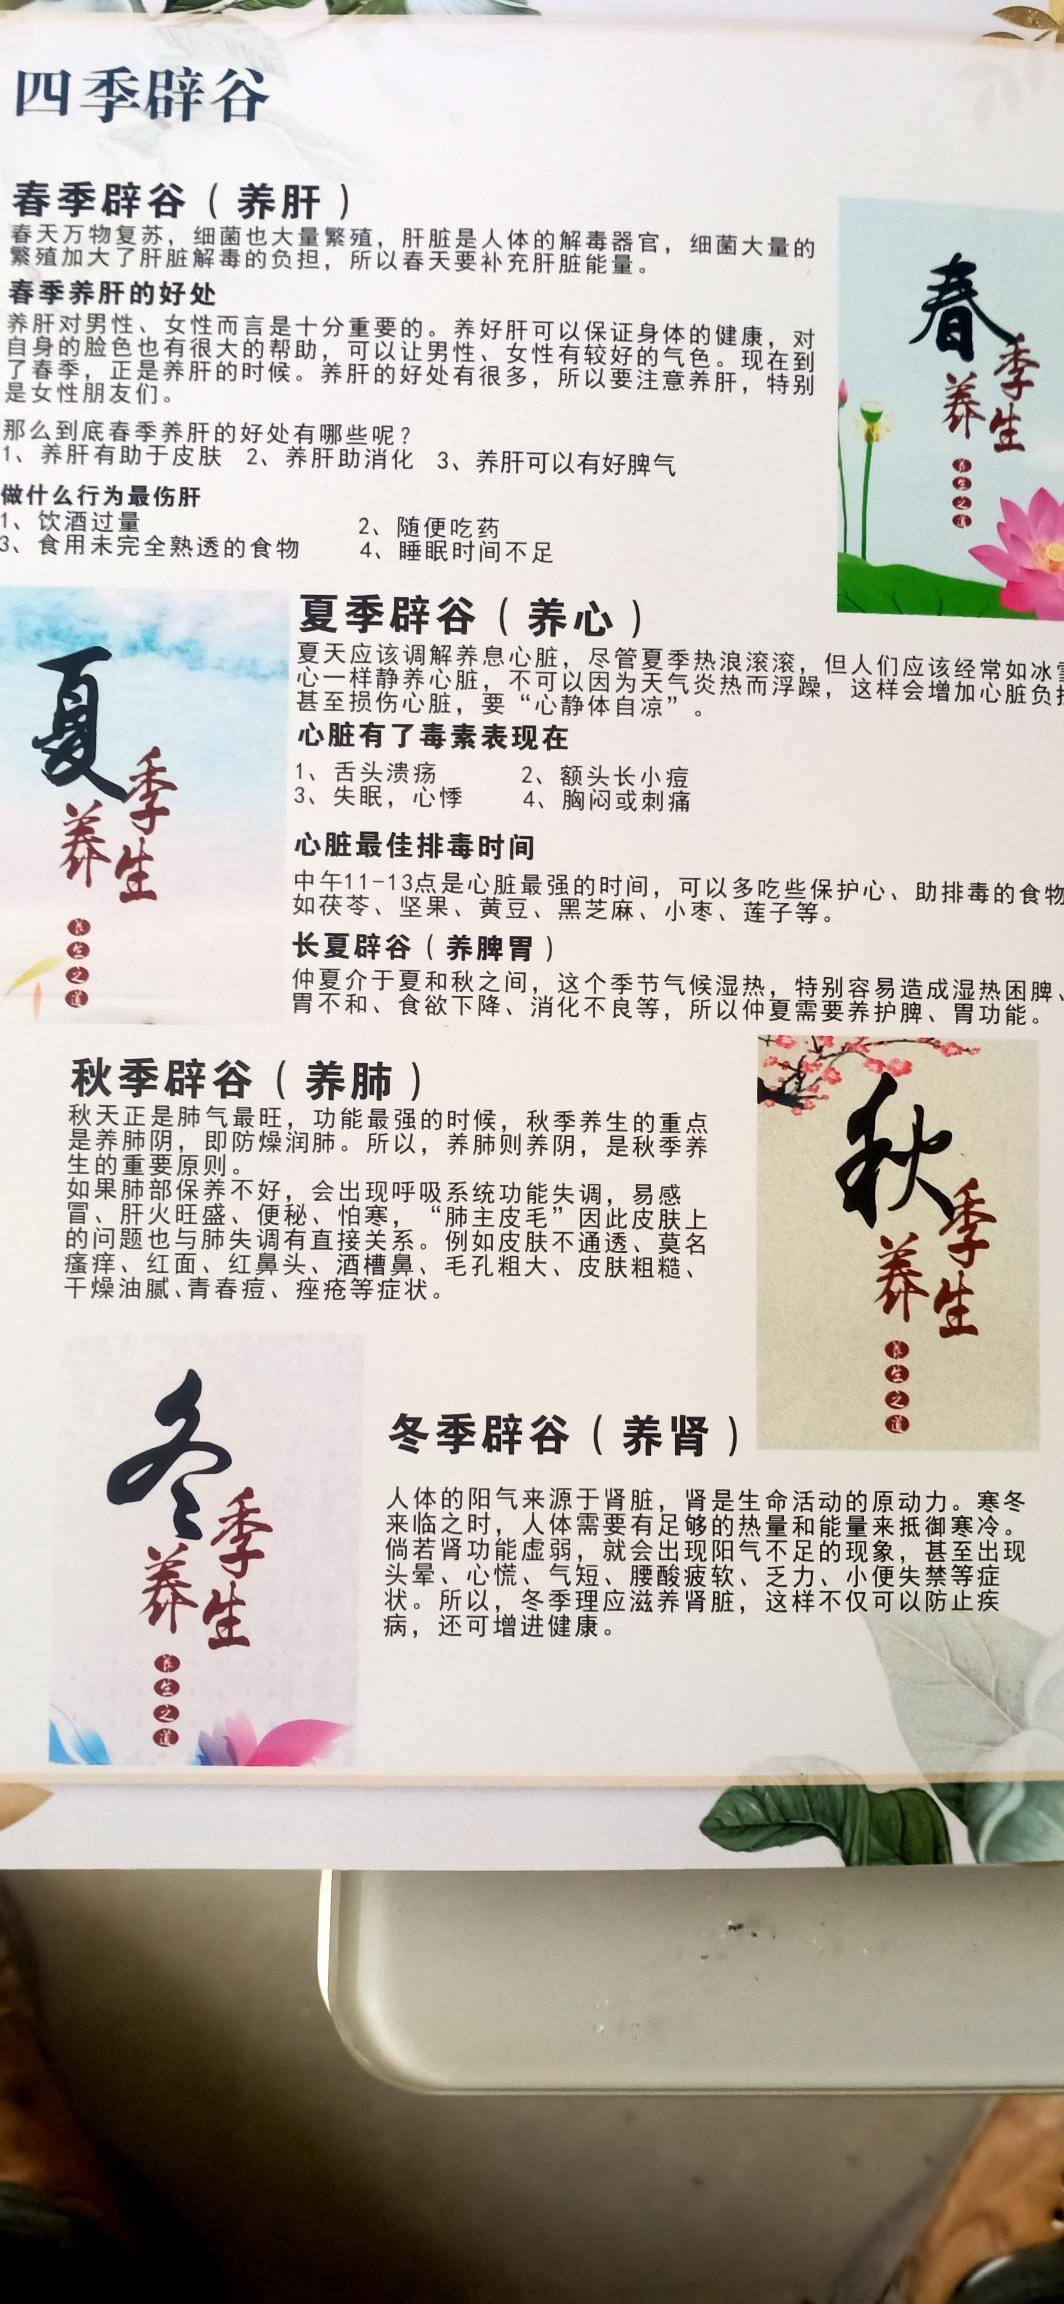 四季辟谷
春季辟谷（养肝）
春天万物复苏，细菌也大量繁殖，肝脏是人体的解毒器官，细菌大量的
繁殖加大了肝脏解毒的负担，所以春天要补充肝脏能量。
春季养肝的好处
养肝对男性、女性而言是十分重要的。养好肝可以保证身体的健康，对
自身的脸色也有很大的帮助，可以让男性、女性有较好的气色。现在到
了春季，正是养肝的时候。养肝的好处有很多，所以要注意养肝，特别
是女性朋友们。
那么到底春季养肝的好处有哪些呢？
1、养肝有助于皮肤 2、养肝助消化 3、养肝可以有好脾气
做什么行为最伤肝
1、饮酒过量 2、随便吃药
3、食用未完全熟透的食物 4、睡眠时间不足
春
季
养
生
养
生
之
道
夏季辟谷（养心）
夏天应该调解养息心脏，尽管夏季热浪滚滚，但人们应该经常如冰雪
心一样静养心脏，不可以因为天气炎热而浮躁，这样会增加心脏负担
甚至损伤心脏，要“心静体自凉”。
心脏有了毒素表现在
1、舌头溃疡 2、额头长小痘
3、失眠，心悸 4、胸闷或刺痛
心脏最佳排毒时间
中午11-13点是心脏最强的时间，可以多吃些保护心、助排毒的食物
如茯苓、坚果、黄豆、黑芝麻、小枣、莲子等。
长夏辟谷（养脾胃）
仲夏介于夏和秋之间，这个季节气候湿热，特别容易造成湿热困脾、
胃不和、食欲下降、消化不良等，所以仲夏需要养护脾、胃功能。
夏
季
养
生
养
生
之
道
秋季辟谷（养肺）
秋天正是肺气最旺，功能最强的时候，秋季养生的重点
是养肺阴，即防燥润肺。所以，养肺则养阴，是秋季养
生的重要原则。
如果肺部保养不好，会出现呼吸系统功能失调，易感
冒、肝火旺盛、便秘、怕寒，“肺主皮毛”因此皮肤上
的问题也与肺失调有直接关系。例如皮肤不通透、莫名
瘙痒、红面、红鼻头、酒槽鼻、毛孔粗大、皮肤粗糙、
干燥油腻、青春痘、痤疮等症状。
秋
季
养
生
养
生
之
道
冬季辟谷（养肾）
人体的阳气来源于肾脏，肾是生命活动的原动力。寒冬
来临之时，人体需要有足够的热量和能量来抵御寒冷。
倘若肾功能虚弱，就会出现阳气不足的现象，甚至出现
头晕、心慌、气短、腰酸疲软、乏力、小便失禁等症
状。所以，冬季理应滋养肾脏，这样不仅可以防止疾
病，还可增进健康。
冬
季
养
生
养
生
之
道